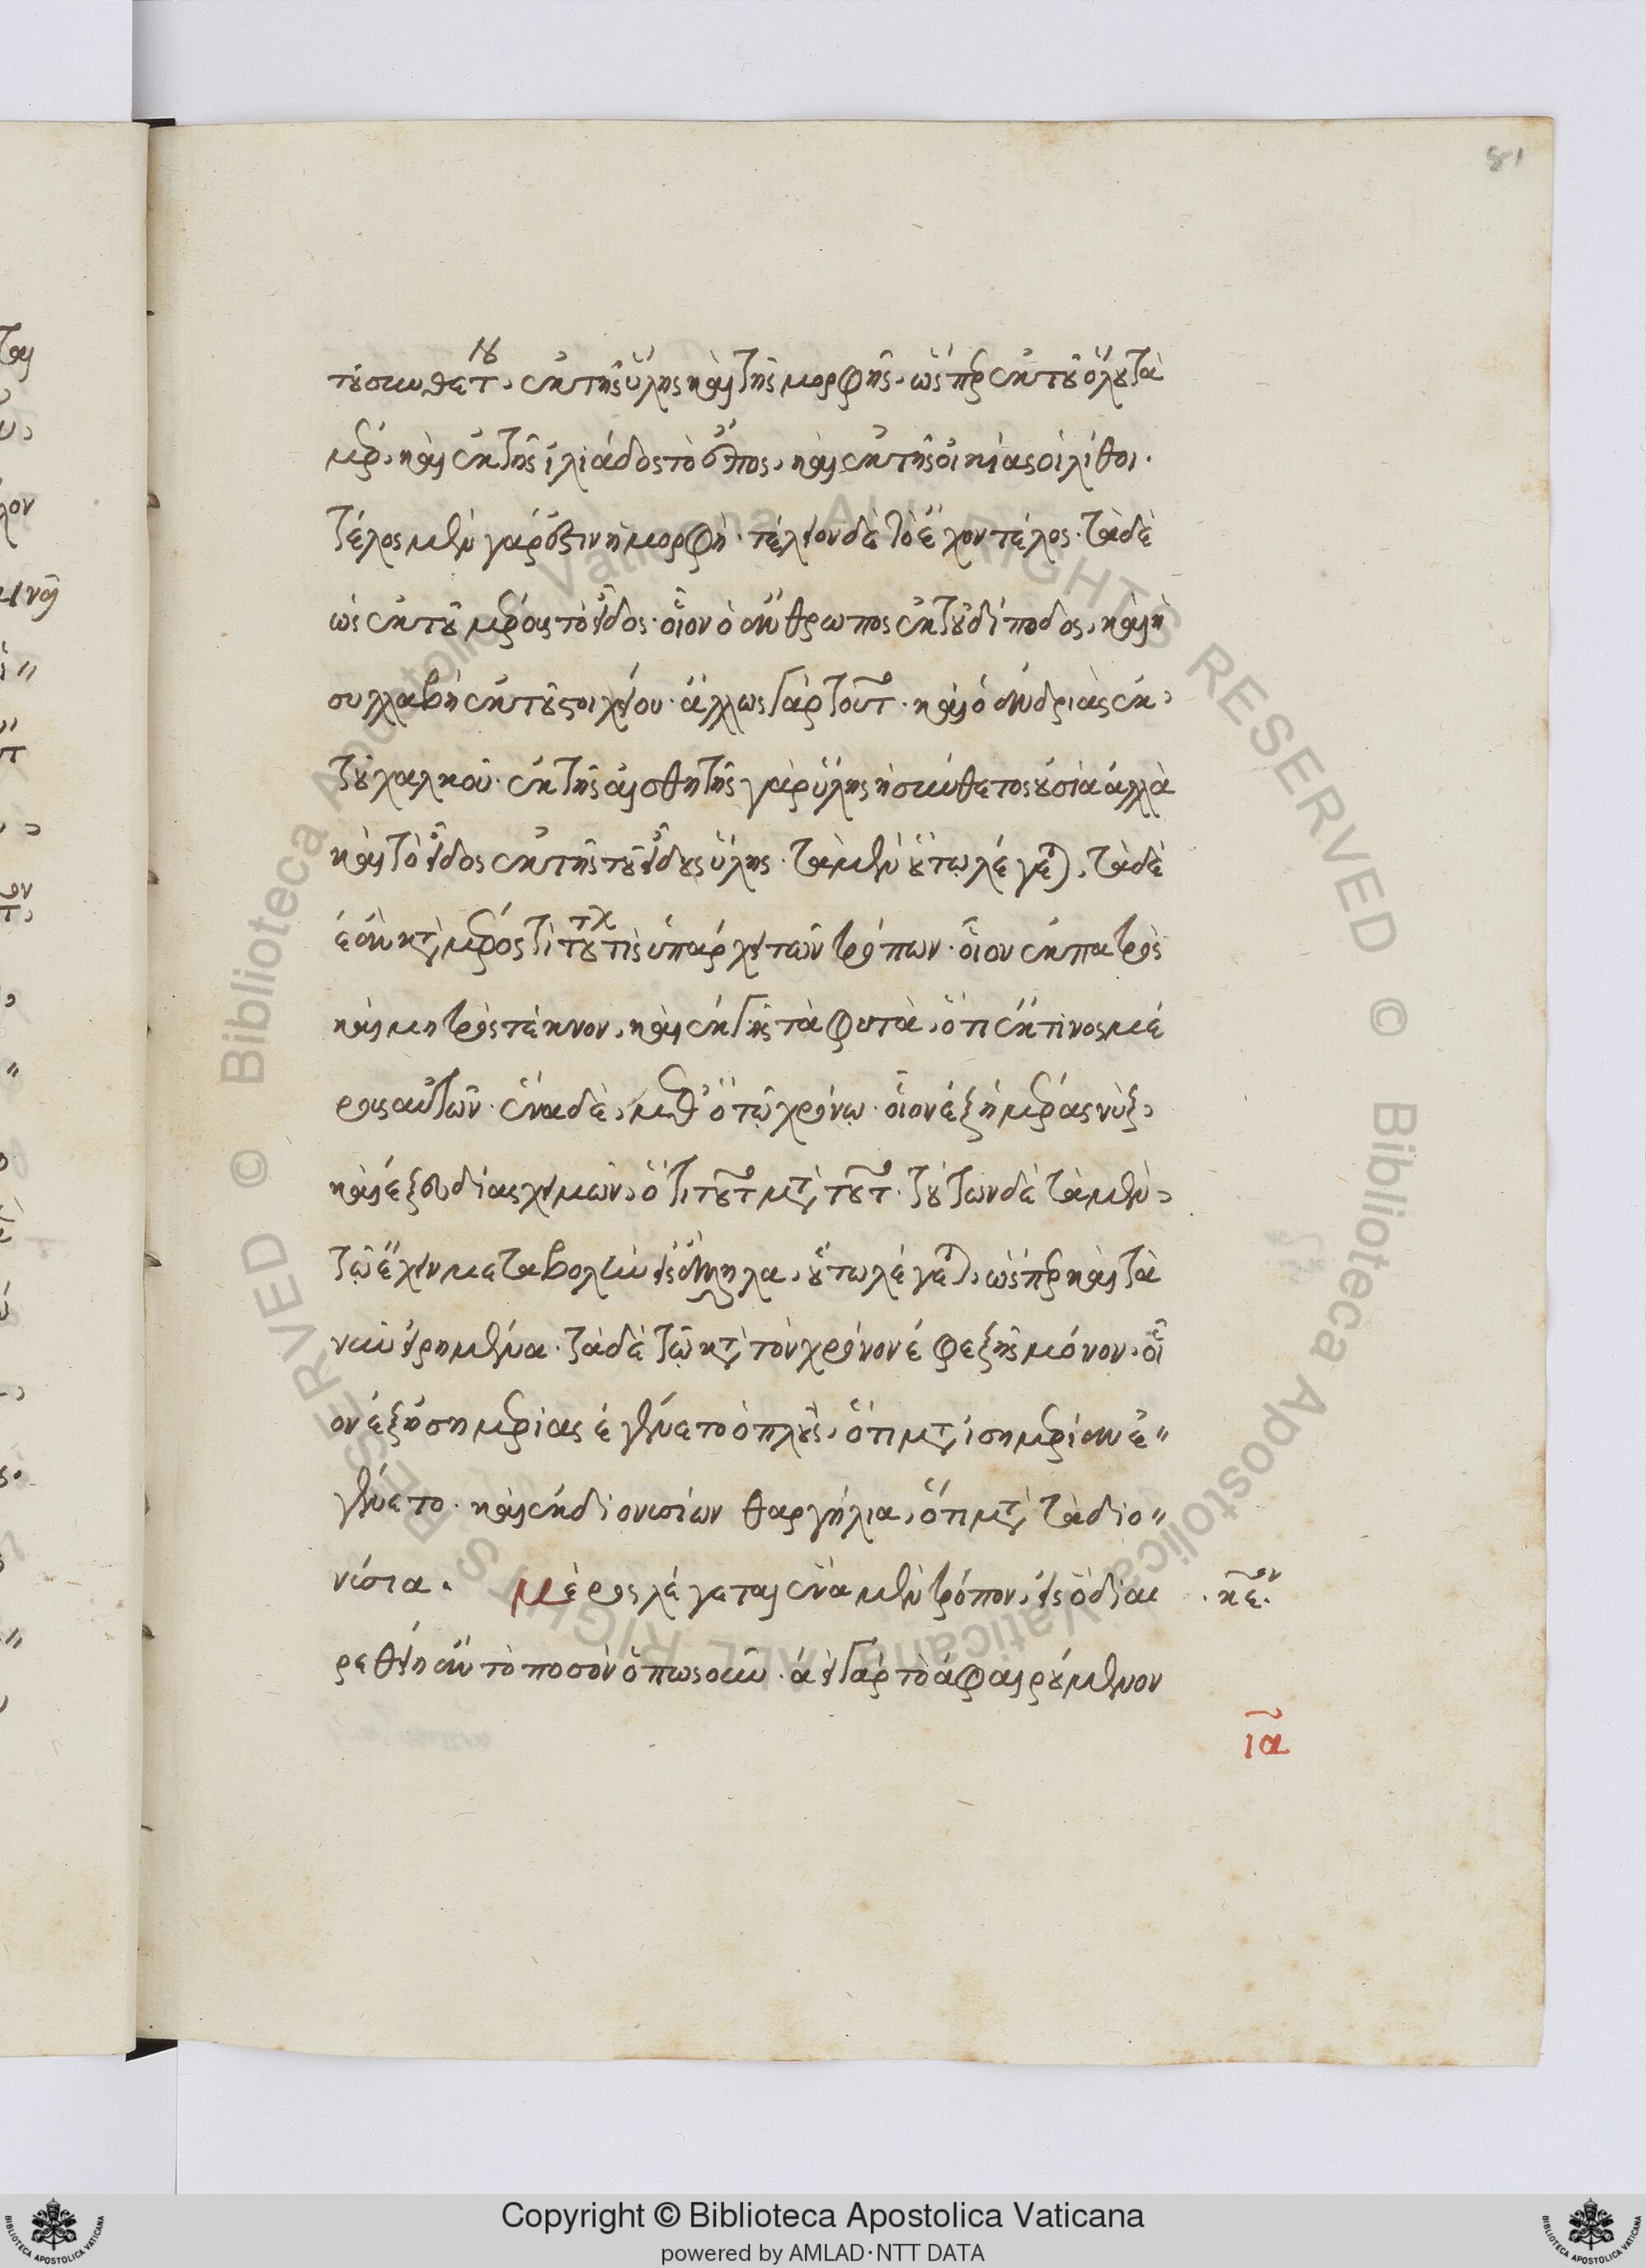 81
τοῦ συνθέτου. ἐκ τῆς ὕλης καὶ τῆς μορφῆς. ὥσπερ ἐκ τοῦ ὅλου τὰ
μέρη, καὶ ἐκ τῆς ἰλιάδος τὸ ἔπος, καὶ ἐκ τῆς οἰκίας οἱ λίθοι.
τέλος μὲν γάρ ἐστιν ἡ μορφή. τέλειον δὲ τὸ ἔχον τέλος. τὰ δὲ
ὡς ἐκ τοῦ μέρους τὸ εἶδος. οἷον ὁ ἄνθρωπος ἐκ τοῦ δίποδος, καὶ ἡ
συλλαβὴ ἐκ τοῦ στοιχείου. ἄλλως γὰρ τοῦτο. καὶ ὁ ἀνδριὰς ἐκ
τοῦ χαλκοῦ. ἐκ τῆς αἰσθητῆς γὰρ ὕλης ἡ σύνθετος οὐσία ἀλλὰ
καὶ τὸ εἶδος ἐκ τῆς τοῦ εἴδους ὕλης. τὰ μὲν οὕτω λέγεται, τὰ δὲ
ἐὰν κατὰ μέρος τι τούτων τις ὑπάρχει τῶν τρόπων. οἷον ἐκ πατρὸς
καὶ μητρὸς τέκνον, καὶ ἐκ γῆς τὰ φυτὰ, ὅτι ἐκ τινος μέ
ρους αὐτῶν. ἕνα δὲ, μεθ' ὃ τῷ χρόνῳ. οἷον ἐξ ἡμέρας νὺξ,
καὶ ἐξ εὐδίας χειμὼν, ὅτι τοῦτο μετὰ τοῦτο. τούτων δὲ τὰ μὲν
τῷ ἔχειν μεταβολὴν εἰς ἄλληλα, οὕτω λέγεται, ὥσπερ καὶ τὰ
νῦν εἰρημένα. τὰ δὲ τῷ κατὰ τὸν χρόνον ἐφεξῆς μόνον. οἷ
ον ἐξ ἰσημερίας ἐγένετο ὁ πλοῦς, ὅτι μετὰ ἰσημερίαν ἐ
γένετο. καὶ ἐκ διονυσίων θαργήλια, ὅτι μετὰ τὰ διο
νύσια. Μέρος λέγεται ἕνα μὲν τρόπον, εἰς ὃ διαι
κε̅ον
ρεθείη ἂν τὸ ποσὸν ὁπωσοῦν. ἀεὶ γὰρ τὸ ἀφαιρούμενον
ια
Copyright © Biblioteca Apostolica Vaticana
powered by AMLAD·NTT DATA